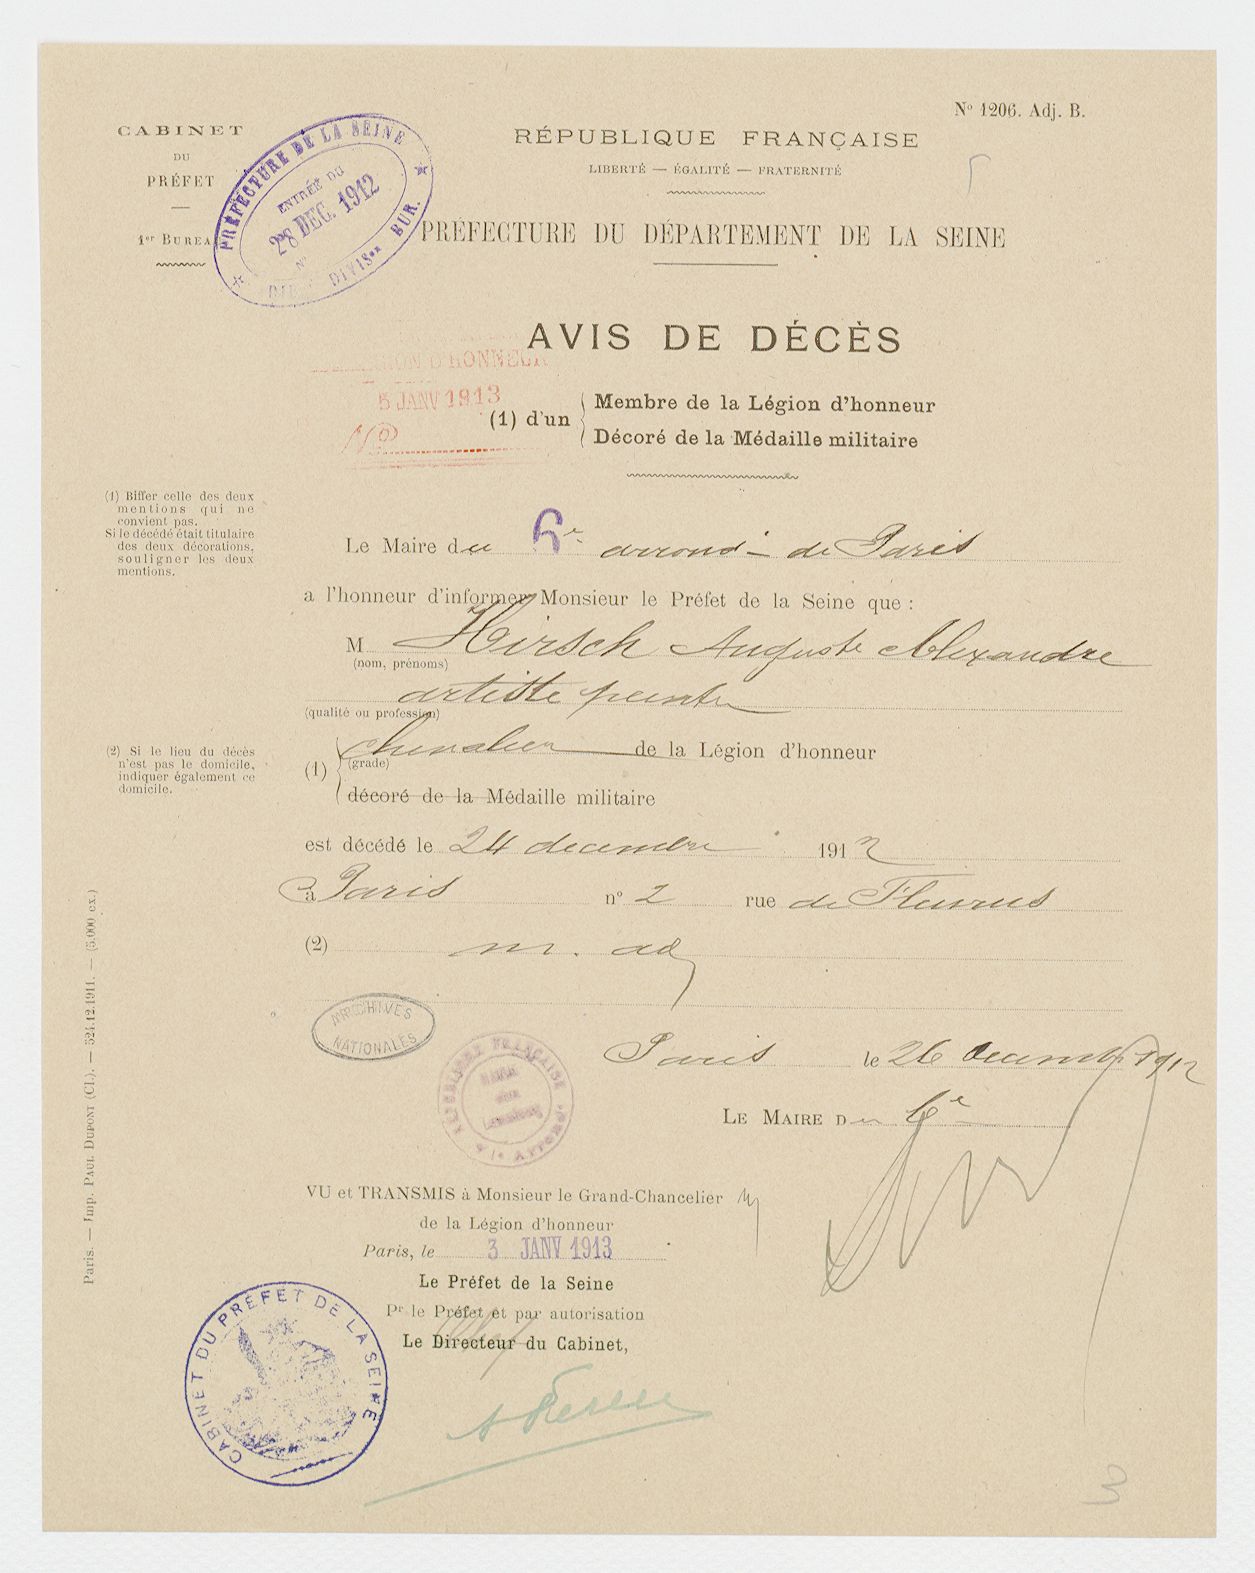 N° 1206. Adj. B.
CABINET
DU
PRÉFET
1er BUREA
PRÉFECTURE DE LA SEINE
ENTRÉE DU
28 DEC. 1912
N°
DIVISon BUR.
RÉPUBLIQUE FRANÇAISE
LIBERTÉ — ÉGALITÉ — FRATERNITÉ
PRÉFECTURE DU DÉPARTEMENT DE LA SEINE
AVIS DE DÉCÈS
D'HONNEUR
5 JANV 1913
N°
(1) d'un
Membre de la Légion d'honneur
Décoré de la Médaille militaire
(1) Biffer celle des deux
mentions qui ne
convient pas.
Si le décédé était titulaire
des deux décorations,
souligner les deux
mentions.
Le Maire du 6e arrond- de Paris
a l'honneur d'informer Monsieur le Préfet de la Seine que :
M Hirsch Auguste Alexandre
(nom, prénoms)
artiste peintre
(qualité ou profession)
(2) Si le lieu du décès
n'est pas le domicile,
indiquer également ce
domicile.
(1)
chevalier de la Légion d'honneur
(grade)
décoré de la Médaille militaire
est décédé le 24 décembre 1912
à Paris n° 2 rue de Fleurus
(2) m. ad
ARCHIVES
NATIONALES
RÉPUBLIQUE FRANÇAISE
Paris le 26 décembre 1912
LE MAIRE Du 6e
VU et TRANSMIS à Monsieur le Grand-Chancelier
de la Légion d'honneur
Paris, le 3 JANV 1913
Le Préfet de la Seine
Pr le Préfet et par autorisation
Le Directeur du Cabinet,
CABINET DU PRÉFET DE LA SEINE
Paris. — Imp. PAUL DUPONT (Cl.). — 524.12.1911. — (5.000 ex.)
3